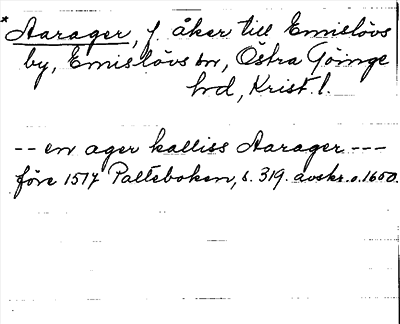 * Aarager, f. åker till Emislövs
by, Emislövs sn, Östra Göinge
hd, Krist. l.
-- en ager kalliss Aarager ---
före 1517 Palteboken, s. 319. avskr. o. 1650.